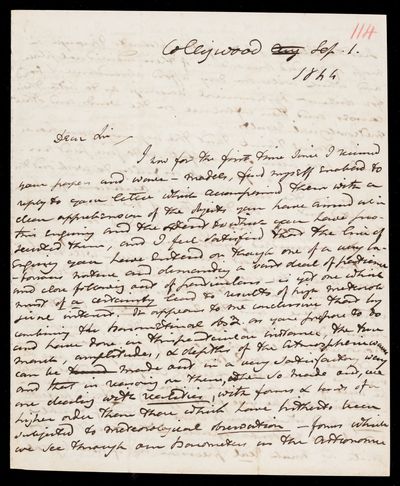 114
Collingwood Aug Sep. 1.
1844
Dear Sir
I now for the first time since I received
your papers and wave-models, find myself enabled to
reply to your letter which accompanied them with a
clear apprehension of the objects you have aimed at in
this enquiry and the extent to which you have pro-
secuted them, and I feel satisfied that the line of
enquiry you have entered on though one of a very la-
borious nature and demanding a vast deal of patience
and close following out of particulars - is yet one which
must of a certainty lead to results of high meteorolo-
gical interest. It appears to me conclusive that by
combining the barometrical and as you propose to do
and have done in the particular instance, the true
march, amplitudes, & depths of the Atmospheric waves
can be made out in a very satisfactory way
and that in reasoning on them, when so made out, we
are dealing with realities, with forms & laws of a
higher order than those which have hitherto been
subjected to meteorological observation - forms which
we see through our barometers as the astronomer